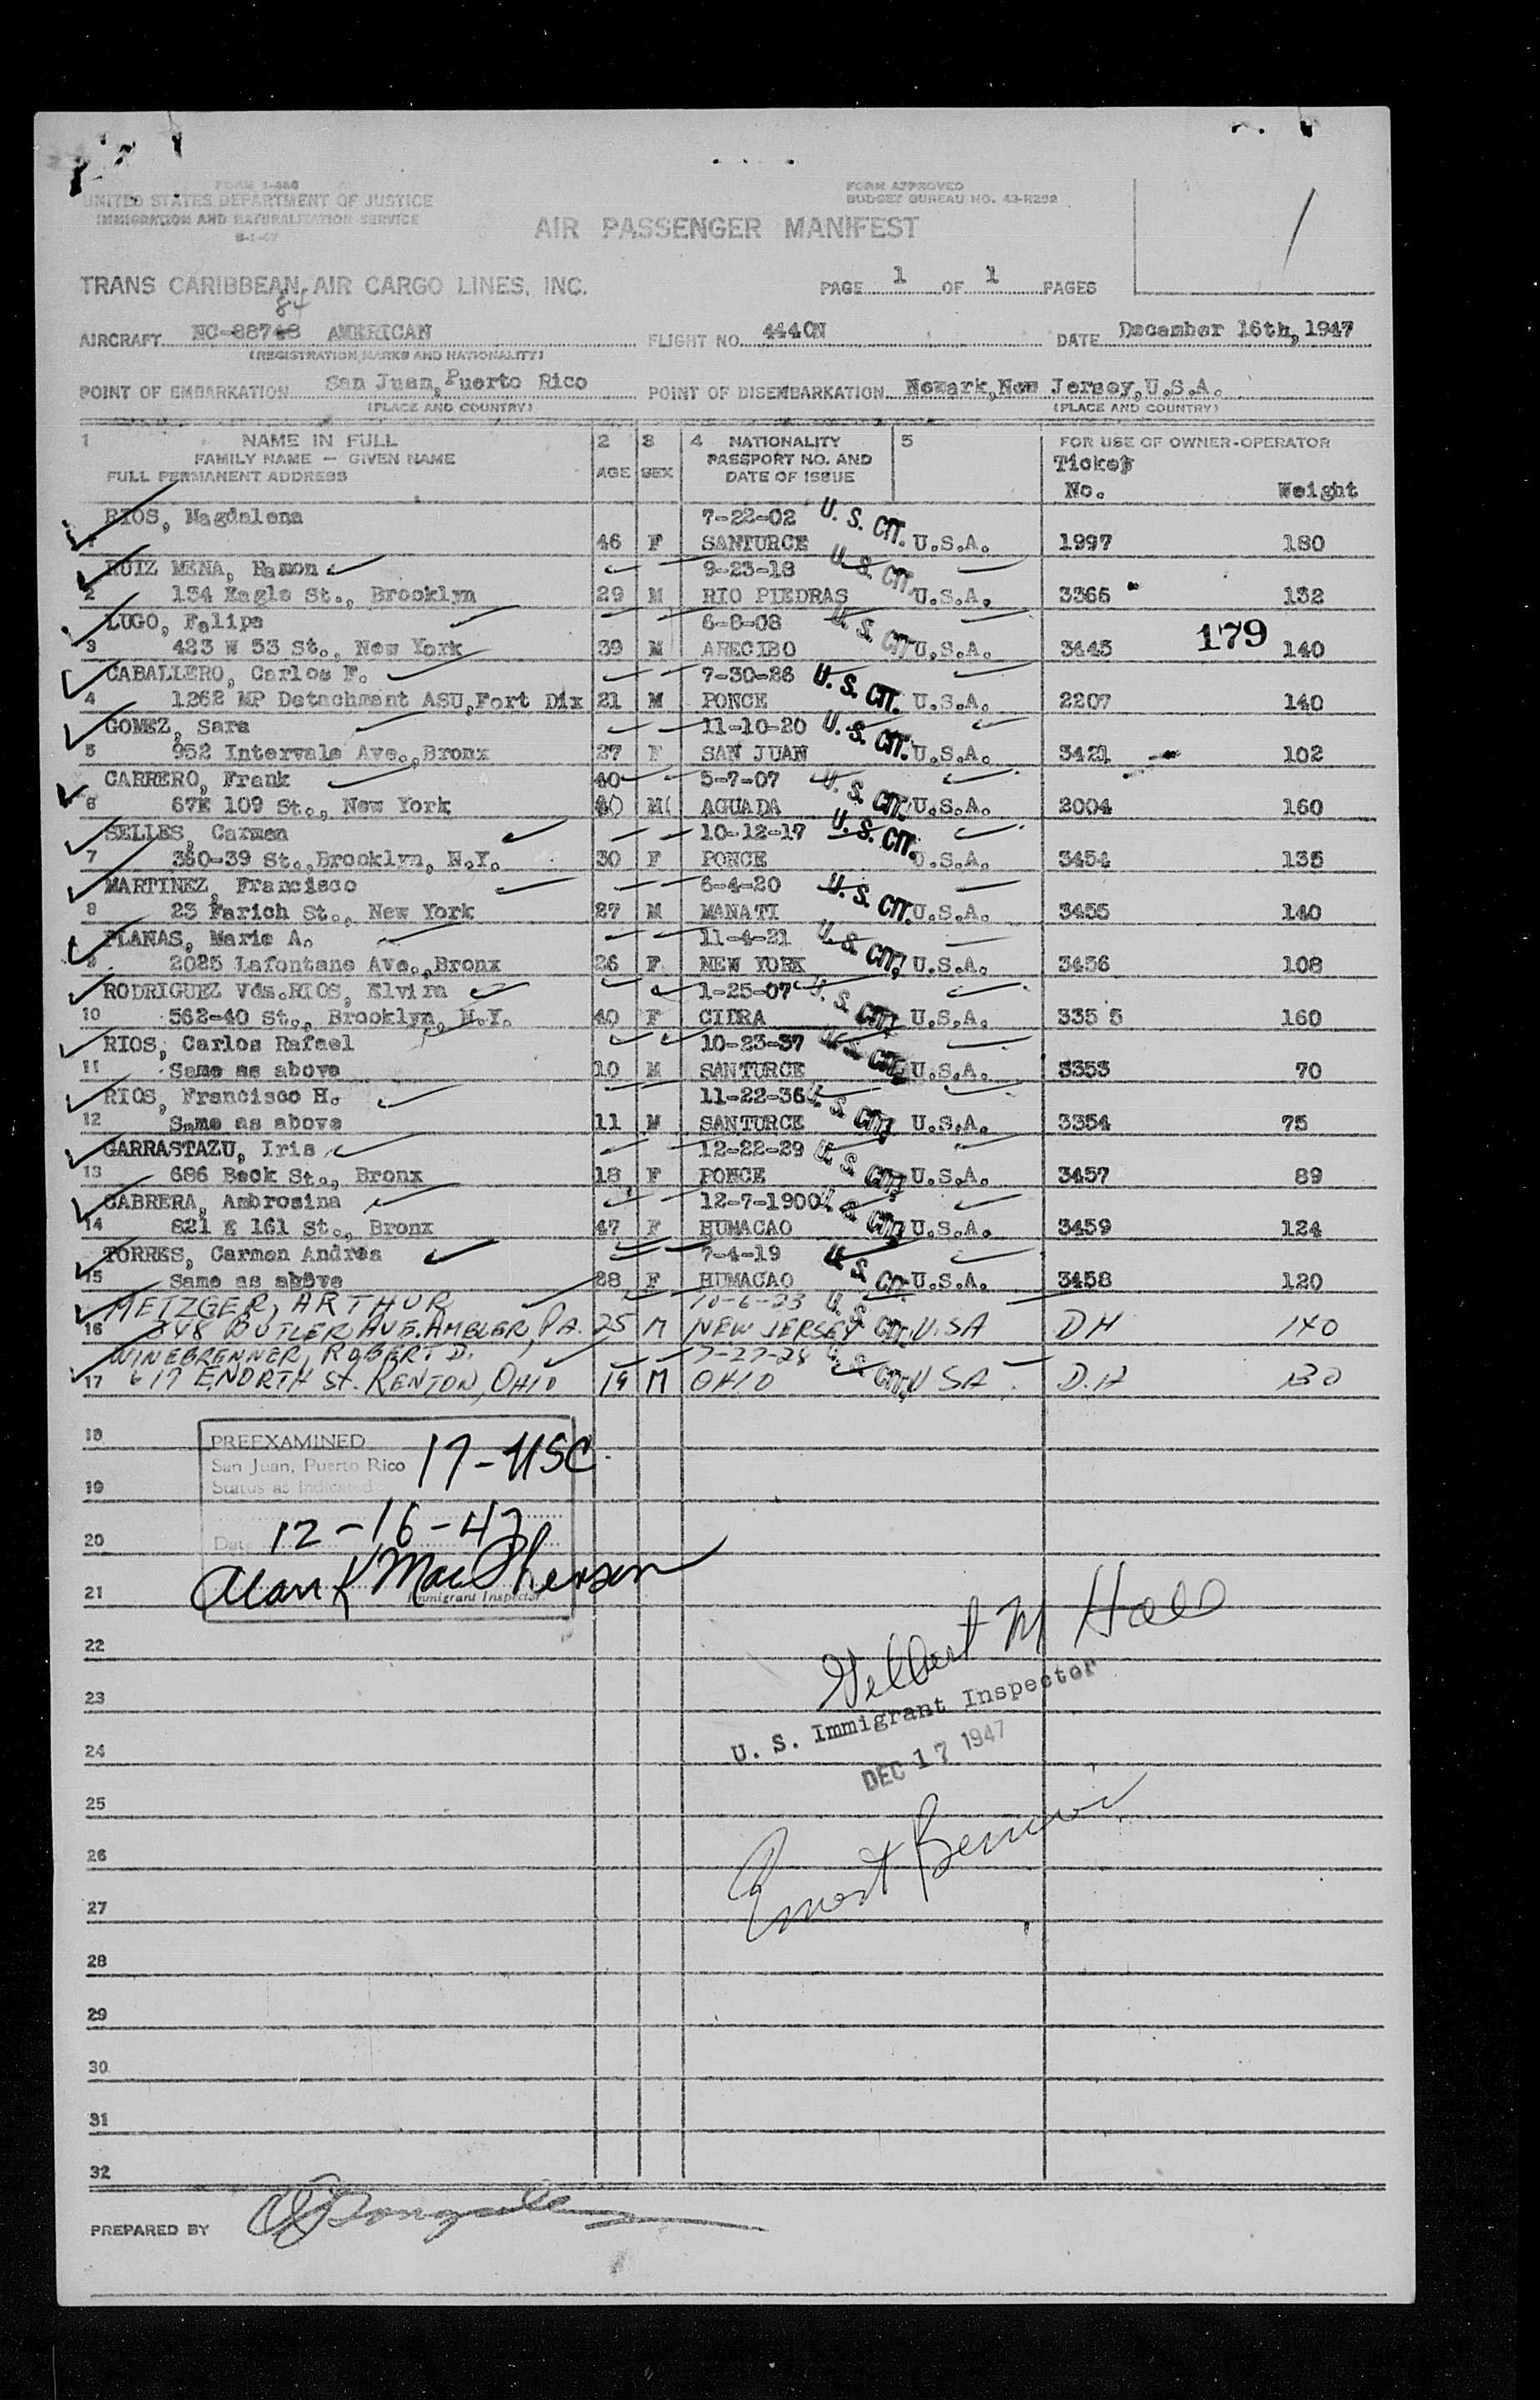 FORM I-466
UNITED STATES DEPARTMENT OF JUSTICE
IMMIGRATION AND NATURALIZATION SERVICE
FORM APPROVED
BUDGET BUREAU NO. 43-R292
AIR PASSENGER MANIFEST
1
TRANS CARIBBEAN AIR CARGO LINES, INC.
PAGE 1 OF 1 PAGES
84
AIRCRAFT NC-88748 AMERICAN FLIGHT NO. 444CN DATE December 16th, 1947
(REGISTRATION MARKS AND NATIONALITY)
POINT OF EMBARKATION San Juan, Puerto Rico POINT OF DISEMBARKATION Newark, New Jersey, U.S.A.
(PLACE AND COUNTRY) (PLACE AND COUNTRY)
1 NAME IN FULL 2 3 4 NATIONALITY 5 FOR USE OF OWNER-OPERATOR
FAMILY NAME — GIVEN NAME AGE SEX PASSPORT NO. AND Ticket
FULL PERMANENT ADDRESS DATE OF ISSUE No. Weight
RIOS, Magdalena 7-22-02 U. S. CIT.
1 46 F SANTURCE U.S.A. 1997 180
RUIZ MENA, Ramon 9-23-18 U. S. CIT.
2 134 Eagle St., Brooklyn 29 M RIO PIEDRAS U.S.A. 3366 132
LUGO, Felipe 6-8-08 U. S. CIT. 179
3 423 W 53 St., New York 39 M ARECIBO U.S.A. 3445 140
CABALLERO, Carlos F. 7-30-26 U. S. CIT.
4 1262 MP Detachment ASU, Fort Dix 21 M PONCE U.S.A. 2207 140
GOMEZ, Sara 11-10-20 U. S. CIT.
5 952 Intervale Ave., Bronx 27 F SAN JUAN U.S.A. 3421 102
CARRERO, Frank 40 5-7-07 U. S. CIT.
6 67E 109 St., New York 40 M AGUADA U.S.A. 2004 160
SELLES, Carmen 10-12-17 U. S. CIT.
7 350-39 St., Brooklyn, N.Y. 30 F PONCE U.S.A. 3454 135
MARTINEZ, Francisco 6-4-20 U. S. CIT.
8 23 Farich St., New York 27 M MANATI U.S.A. 3455 140
PLANAS, Marie A. 11-4-21 U. S. CIT.
9 2085 Lafontane Ave., Bronx 26 F NEW YORK U.S.A. 3456 108
RODRIGUEZ Vda. RIOS, Elvira 1-25-07 U. S. CIT.
10 562-40 St., Brooklyn, N.Y. 40 F CIDRA U.S.A. 335 5 160
RIOS, Carlos Rafael 10-23-37 U. S. CIT.
11 Same as above 10 M SANTURCE U.S.A. 3353 70
RIOS, Francisco H. 11-22-36 U. S. CIT.
12 Same as above 11 M SANTURCE U.S.A. 3354 75
GARRASTAZU, Iris 12-22-29 U. S. CIT.
13 686 Beck St., Bronx 18 F PONCE U.S.A. 3457 89
CABRERA, Ambrosina 12-7-1900 U. S. CIT.
14 821 E 161 St., Bronx 47 F HUMACAO U.S.A. 3459 124
TORRES, Carmen Andrea 7-4-19 U. S. CIT.
15 Same as above 28 F HUMACAO U.S.A. 3458 120
METZGER, ARTHUR 10-6-23 U. S. CIT.
16 348 BUTLER AVE. AMBLER, PA. 25 M NEW JERSEY U.SA DH 140
WINEBRENNER, ROBERT D. 7-27-28 U. S. CIT.
17 617 E NORTH ST. KENTON, OHIO 19 M OHIO U SA D.H 130
18 PREEXAMINED 17-USC.
San Juan, Puerto Rico
19 Status as indicated
20 Date 12-16-47
Alan K MacPherson
21 Immigrant Inspector
22
Gilbert M Hall
23 U. S. Immigrant Inspector
24 DEC 17 1947
25
26
Ernest
27
28
29
30
31
32
PREPARED BY